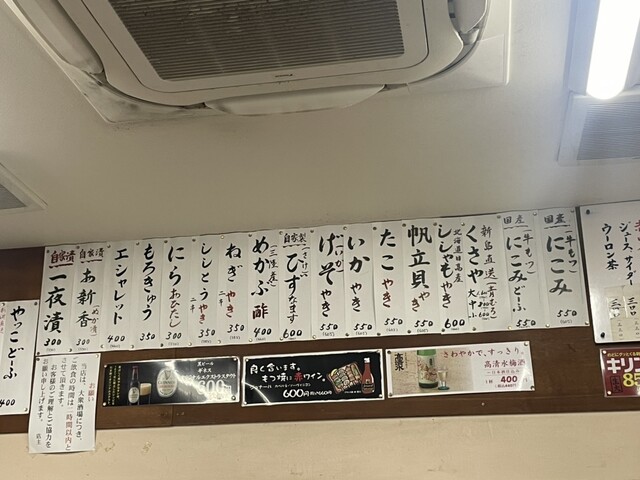 国産(牛もつ)にこみ 550
国産(牛もつ)にこみどーふ 550
新島直送(青むろ)くさや 大
北海道日高産 ししゃもやき 600
帆立貝やき 550
たこやき 550
いかやき 550
げそやき 550
自家製 ひずなます 600
(三陸産)めかぶ酢 400
ねぎやき 350
ししとうやき 350
にらおひたし 300
もろきゅう 350
エシャレット 400
自家漬 お新香(ぬか漬) 300
自家漬 一夜漬 300
やっこどーふ 400
ジュース サイダー
ウーロン茶
お願い
当店、大衆酒場につき、
ご飲食の時間は二時間以内と
させて頂きます。
お客様のご理解とご協力を
お願い申し上げます。
店主
黒ビール
ギネス
エクストラスタウト
600円
良く合います。
もつ焼に赤ワイン。
600円
さわやかで、すっきり。
高清水梅酒
400
キリン